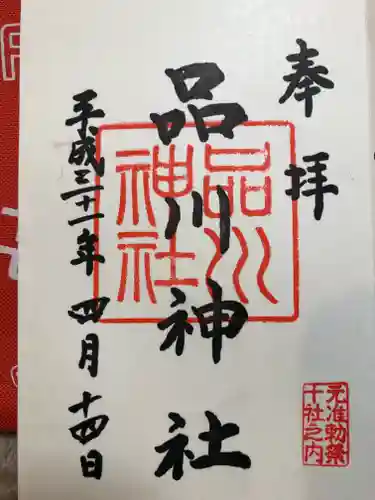 奉拝
品川神社
品川神社
平成三十一年四月十四日
元准勅祭
十社之内